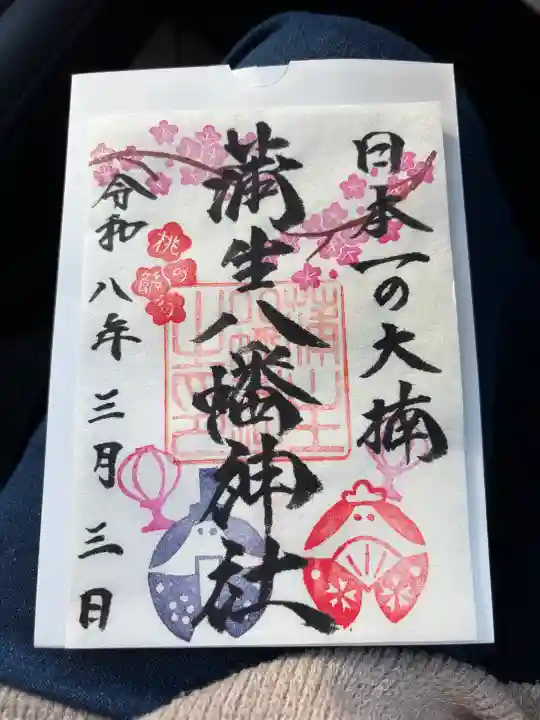 日本一の大楠
蒲生八幡神社
桃の節句
令和八年三月三日